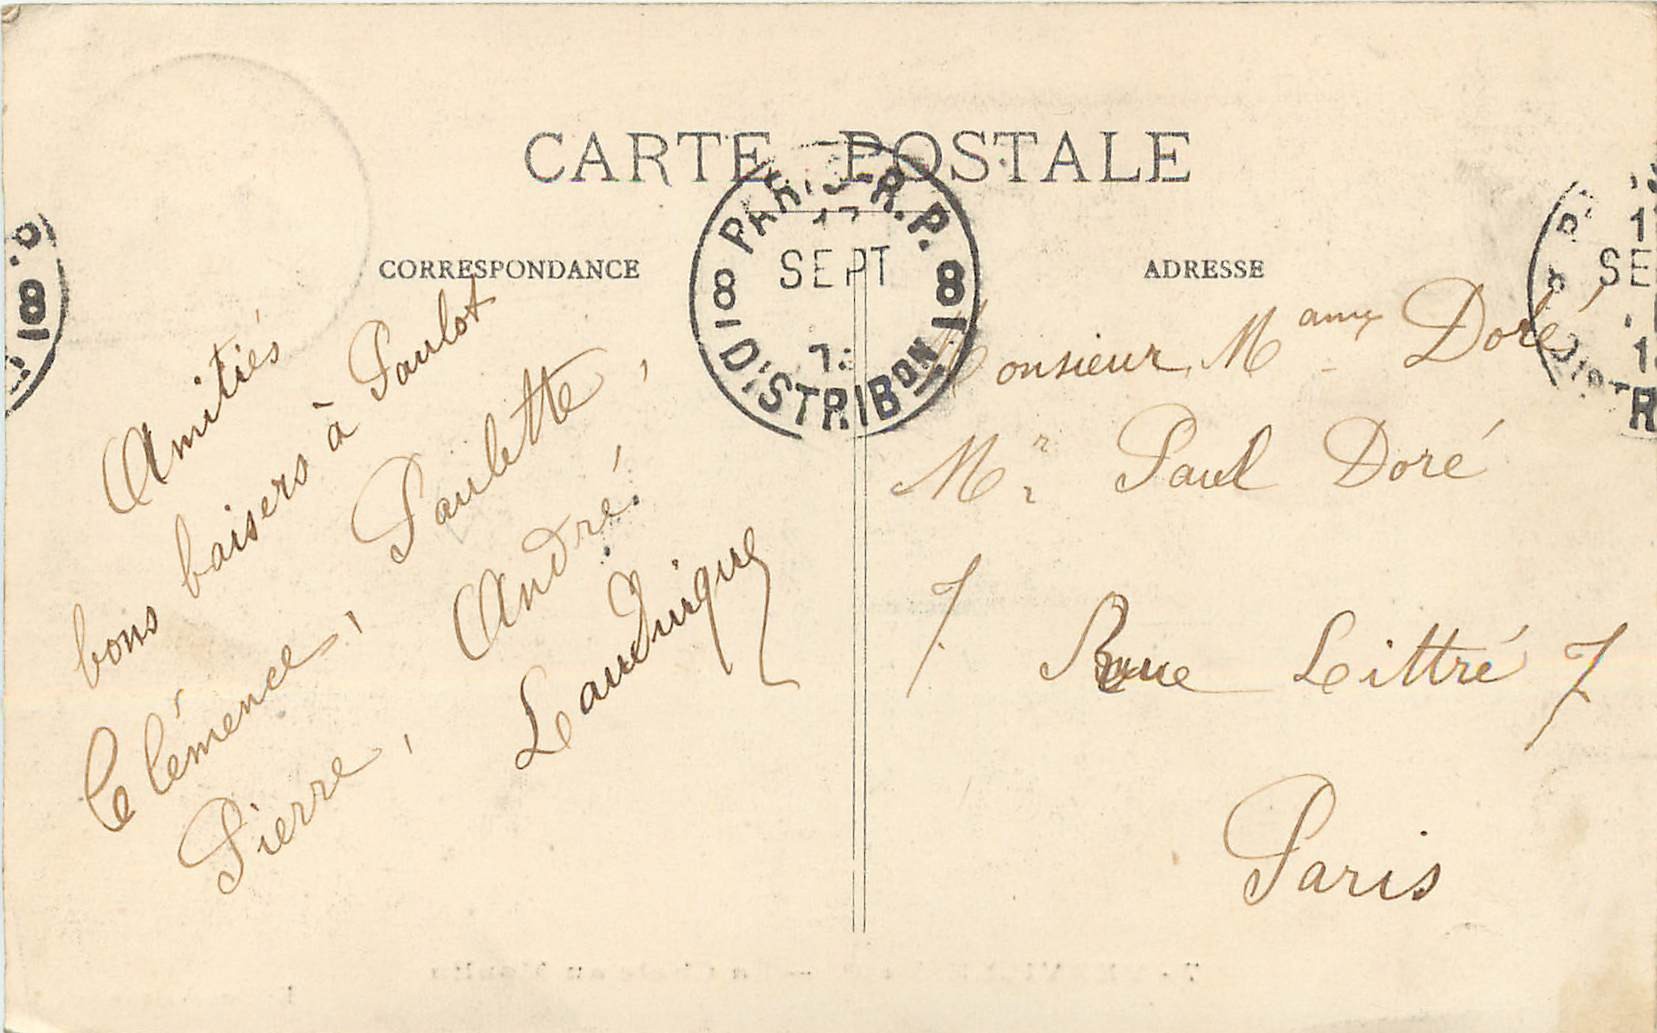 CARTE POSTALE
CORRESPONDANCE
ADRESSE
PARIS-R.P.
SEPT
8 8
DISTRIBON
Amitiés
bons baisers à Paulot
Clémence, Paulette,
Pierre, André.
Monsieur, Mame Doré
Mr Paul Doré
7 Rue Littré 7
Paris